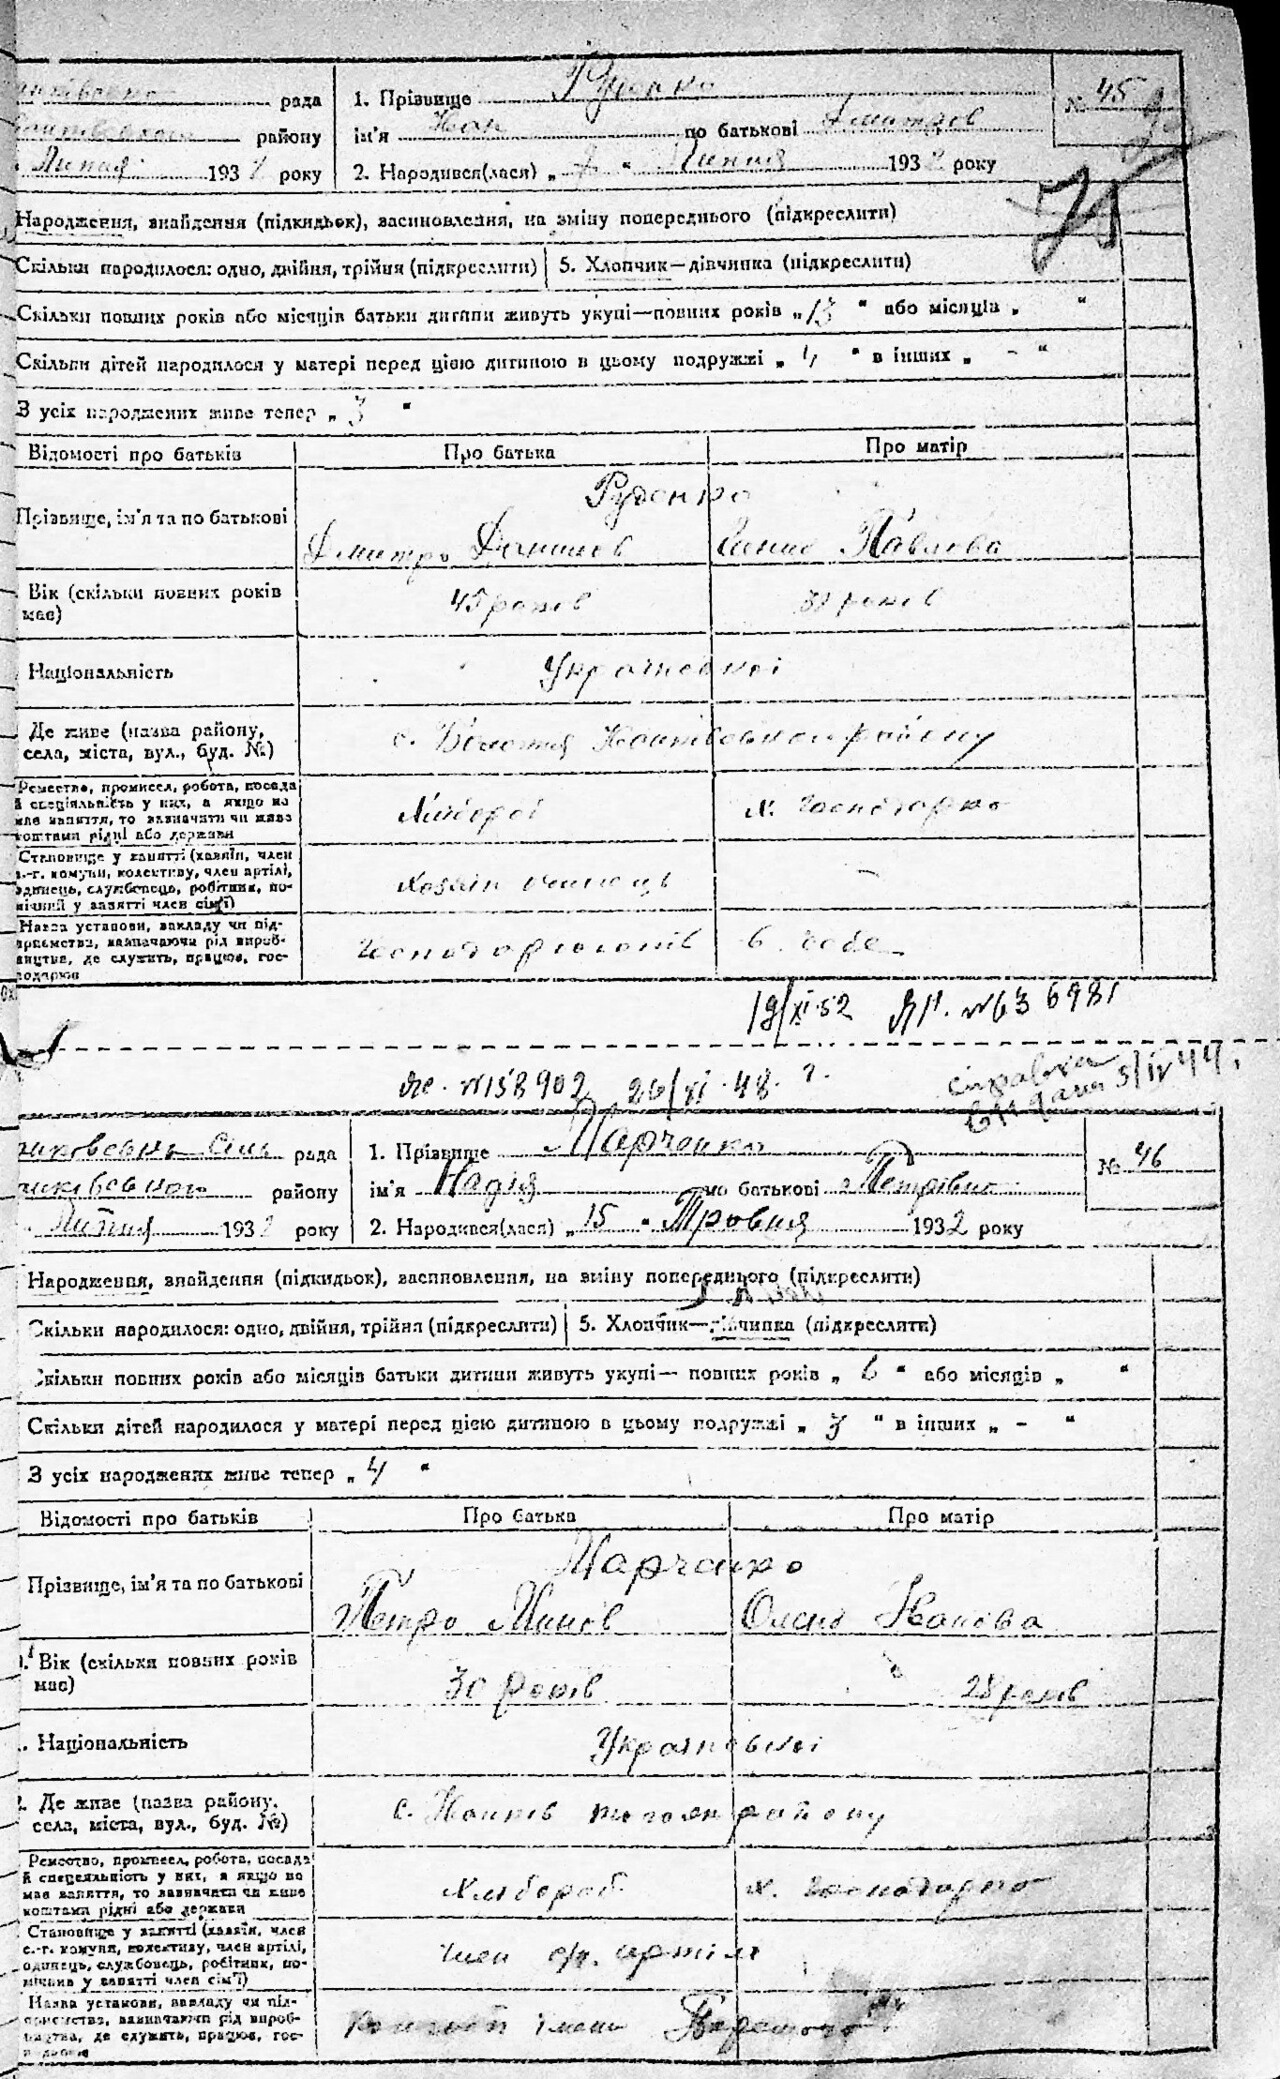 рада
1. Прізвище Руденко
№ 45
району
ім'я Іван по батькові Дмитров
Липня 193 року
2. Народився(лася) „ “ Липня 193 року
75
Народження, знайдення (підкидьок), засиновлення, на зміну попереднього (підкреслити)
Скільки народилося: одно, двійня, трійня (підкреслити)
5. Хлопчик—дівчинка (підкреслити)
Скільки повних років або місяців батьки дитини живуть укупі—повних років „13“ або місяців „ “
Скільки дітей народилося у матері перед цією дитиною в цьому подружжі „4“ в інших „-“
З усіх народжених живе тепер „3“
Відомості про батьків
Про батька
Про матір
Прізвище, ім'я та по батькові
Руденко
Дмитро Данилов
Ганна Павлова
Вік (скільки повних років має)
45 років
років
Національність
Української
Де живе (назва району, села, міста, вул., буд. №)
с. району
Ремество, промисел, робота, посада й спеціяльність у них, а якщо не має заняття, то зазначити чи живе коштами рідні або держави
Хлібороб
х. господарка
Становище у занятті (хазяїн, член с.-г. комуни, колективу, член артілі, одинець, службовець, робітник, помічний у занятті член сім'ї)
Хазяін одинець
-
Назва установи, закладу чи підприємства, зазначаючи рід виробництва, де служить, працює, господарює
в себе
19/XI-52 ЯП. №636981
№158902 26/XI-48 г.
справка
видана 5/IV 44 г.
рада
1. Прізвище Марченко
№ 46
району
ім'я Надія по батькові Петрівна
Липня 193 року
2. Народився(лася) „15“ Травня 1932 року
Народження, знайдення (підкидьок), засиновлення, на зміну попереднього (підкреслити)
Скільки народилося: одно, двійня, трійня (підкреслити)
5. Хлопчик—дівчинка (підкреслити)
Скільки повних років або місяців батьки дитини живуть укупі— повних років „6“ або місяців „ “
Скільки дітей народилося у матері перед цією дитиною в цьому подружжі „3“ в інших „-“
З усіх народжених живе тепер „4“
Відомості про батьків
Про батька
Про матір
Прізвище, ім'я та по батькові
Марченко
Петро
Олена Іванова
Вік (скільки повних років має)
30 років
28 років
Національність
Української
Де живе (назва району, села, міста, вул., буд. №)
с. району
Ремество, промисел, робота, посада й спеціяльність у них, а якщо не має заняття, то зазначити чи живе коштами рідні або держави
Хлібороб
х. господарка
Становище у занятті (хазяїн, член с.-г. комуни, колективу, член артілі, одинець, службовець, робітник, помічник у занятті член сім'ї)
Член с/г. артілі
Назва установи, закладу чи підприємства, зазначаючи рід виробництва, де служить, працює, господарює
імени